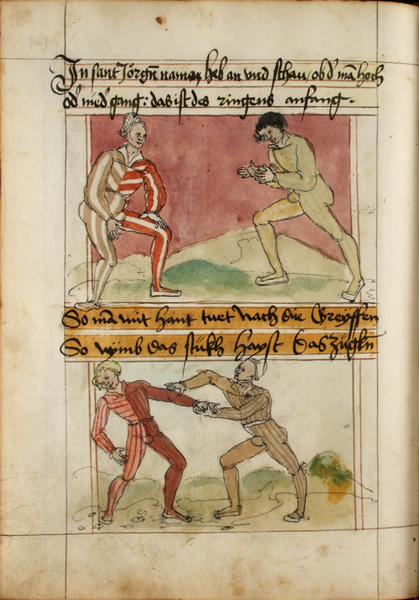 In sant Jörgn namen heb an vnd schau / ob d' mā hoch
od' nid' gang : das ist des ringens anfang .
So mā mit hant tuet nach dir Greyffen
So nymb das stükh hayst Das Zügkn